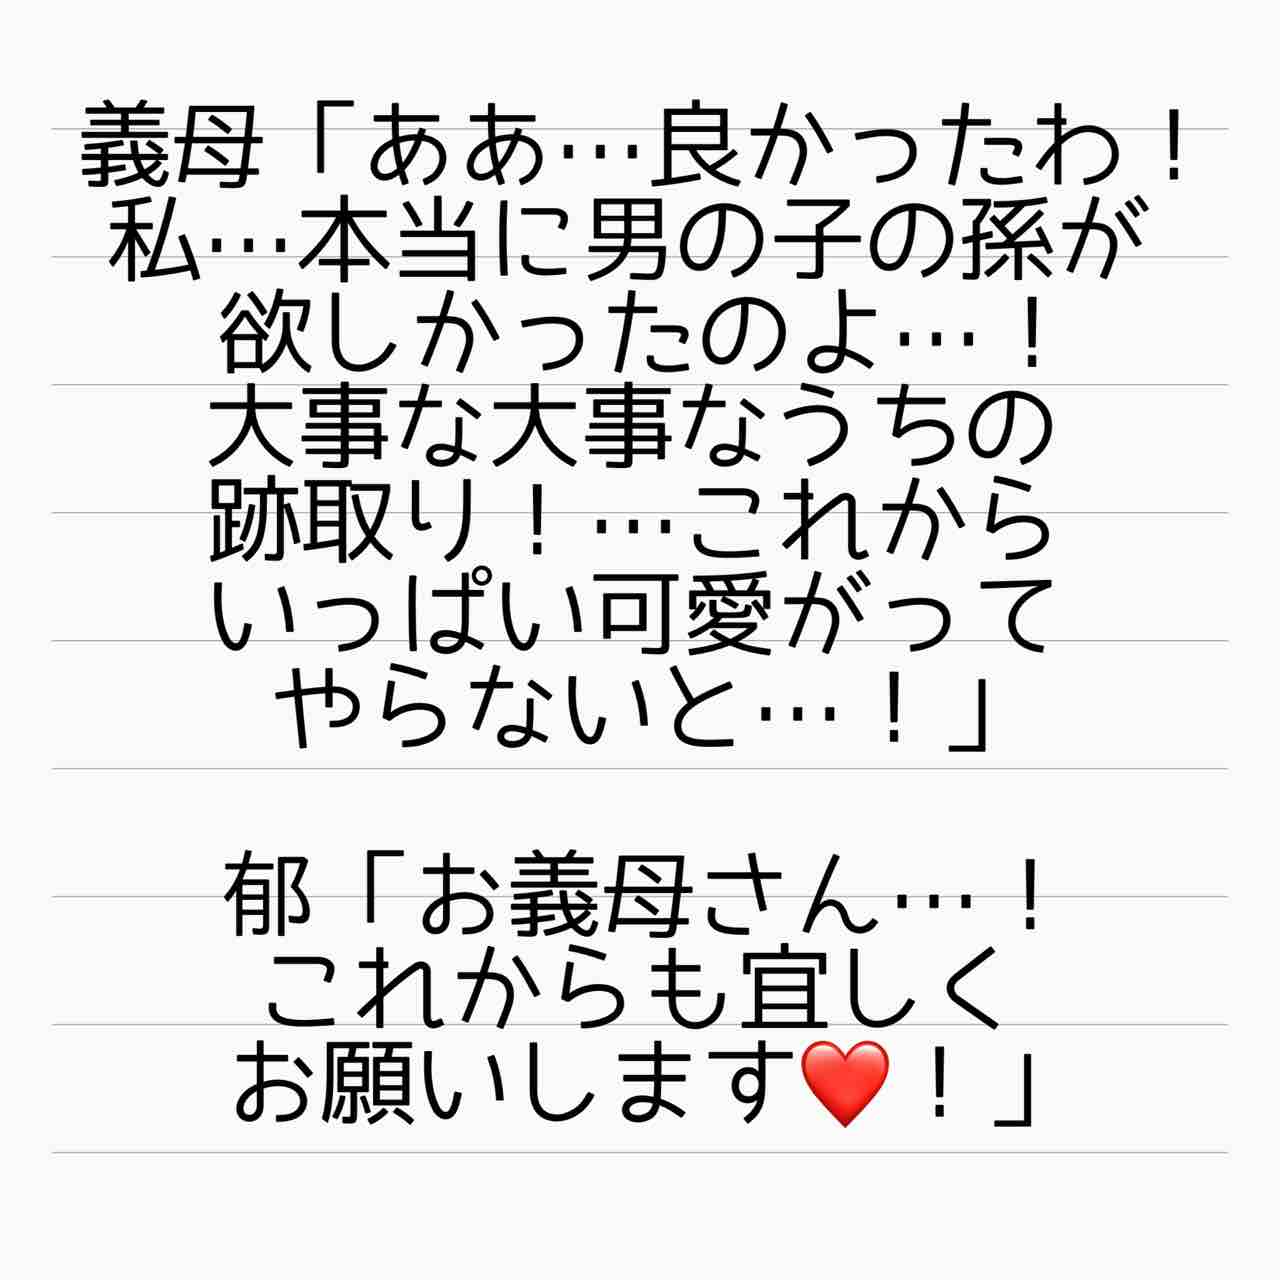 義母「ああ…良かったわ！
私…本当に男の子の孫が
欲しかったのよ…！
大事な大事なうちの
跡取り！…これから
いっぱい可愛がって
やらないと…！」
郁「お義母さん…！
これからも宜しく
お願いします❤️！」